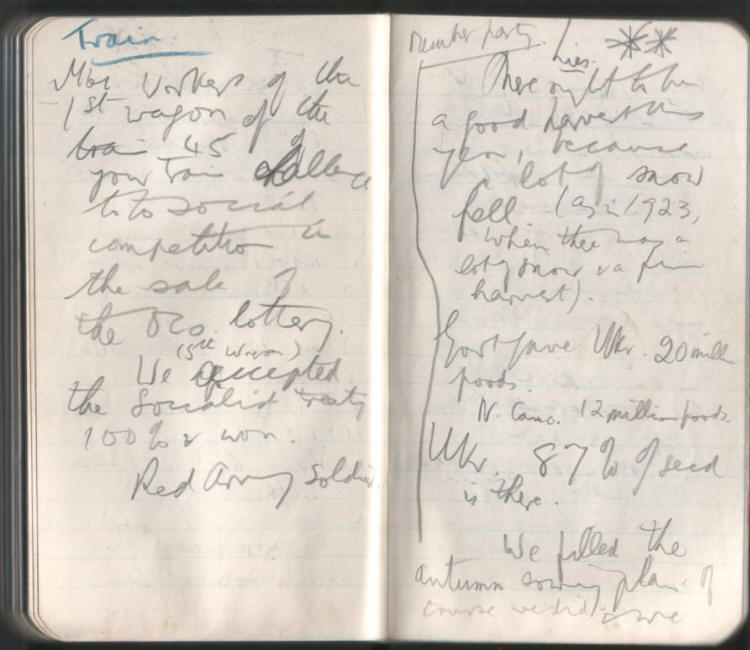 Train
We workers of the
1st wagon of the
train 45 of
your Train challenge
to social
competition in
the sale of
the Oso. lottery.
(5th Wagon)
We accepted
the Socialist treaty
100% & won.
Red Army Soldier
Member party. Lies.
There ought to be
a good harvest this
year, because
a lot of snow
fell (as in 1923,
when there was a
lot of snow & a fine
harvest).
Govt gave Ukr. 20 mill
poods.
N. Cauc. 12 million poods.
Ukr. 87% of seed
is there.
We filled the
autumn sowing plan. Of
course we did, & we